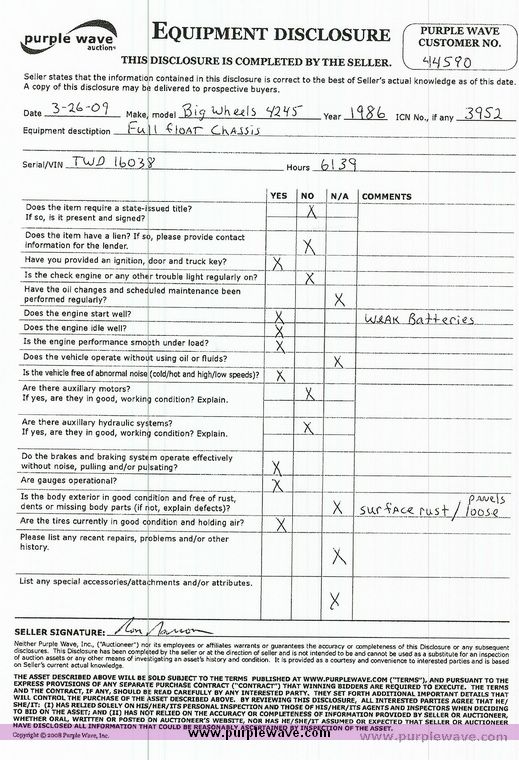 purple wave
auction
EQUIPMENT DISCLOSURE
THIS DISCLOSURE IS COMPLETED BY THE SELLER.
PURPLE WAVE
CUSTOMER NO.
44590
Seller states that the information contained in this disclosure is correct to the best of Seller's actual knowledge as of this date.
A copy of this disclosure may be delivered to prospective buyers.
Date 3-26-09 Make, model Big Wheels 4245 Year 1986 ICN No., if any 3952
Equipment desctiption Full float Chassis
Serial/VIN TWD 16038 Hours 6139
YES NO N/A COMMENTS
Does the item require a state-issued title?
If so, is it present and signed? X
Does the item have a lien? If so, please provide contact
information for the lender. X
Have you provided an ignition, door and truck key? X
Is the check engine or any other trouble light regularly on? X
Have the oil changes and scheduled maintenance been
performed regularly? X
Does the engine start well? X weak Batteries
Does the engine idle well? X
Is the engine performance smooth under load? X
Does the vehicle operate without using oil or fluids? X
Is the vehicle free of abnormal noise (cold/hot and high/low speeds)? X
Are there auxillary motors?
If yes, are they in good, working condition? Explain. X
Are there auxillary hydraulic systems?
If yes, are they in good, working condition? Explain. X
Do the brakes and braking system operate effectively
without noise, pulling and/or pulsating? X
Are gauges operational? X
Is the body exterior in good condition and free of rust,
dents or missing body parts (if not, explain defects)? X surface rust / panels loose
Are the tires currently in good condition and holding air? X
Please list any recent repairs, problems and/or other
history. X
List any special accessories/attachments and/or attributes.
X
SELLER SIGNATURE:
Neither Purple Wave, Inc., ("Auctioneer") nor its employees or affiliates warrants or guarantees the accuracy or completeness of this Disclosure or any subsequent
disclosures. This Disclosure has been completed by the seller or at the direction of seller and is not intended to and cannot be used as a substitute for an inspection
of auction assets or any other means of investigating an asset's history and condition. It is provided as a courtesy and convenience to interested parties and is based
on Seller's current actual knowledge.
THE ASSET DESCRIBED ABOVE WILL BE SOLD SUBJECT TO THE TERMS PUBLISHED AT WWW.PURPLEWAVE.COM ("TERMS"), AND PURSUANT TO THE
EXPRESS PROVISIONS OF ANY SEPARATE PURCHASE CONTRACT ("CONTRACT") THAT WINNING BIDDERS ARE REQUIRED TO EXECUTE. THE TERMS
AND THE CONTRACT, IF ANY, SHOULD BE READ CAREFULLY BY ANY INTERESTED PARTY. THEY SET FORTH ADDITIONAL IMPORTANT DETAILS THAT
WILL CONTROL THE PURCHASE OF THE ASSET DESCRIBED ABOVE. BY REVIEWING THIS DISCLOSURE, ALL INTERESTED PARTIES AGREE THAT HE/
SHE/IT: (I) HAS RELIED SOLELY ON HIS/HER/ITS PERSONAL INSPECTION AND THOSE OF HIS/HER/ITS AGENTS AND INSPECTORS WHEN DECIDING
TO BID ON THE ASSET; AND (II) HAS NOT RELIED ON THE ACCURACY OR COMPLETENESS OF INFORMATION PROVIDED BY SELLER OR AUCTIONEER,
WHETHER ORAL, WRITTEN OR POSTED ON AUCTIONEER'S WEBSITE, NOR HAS HE/SHE/IT ASSUMED OR EXPECTED THAT SELLER OR AUCTIONEER
HAVE DISCLOSED ALL INFORMATION THAT COULD BE REASONABLY ASCERTAINED BY INSPECTION OF THE ASSET.
Copyright © 2008 Purple Wave, Inc.
www.purplewave.com
www.purplewave.com